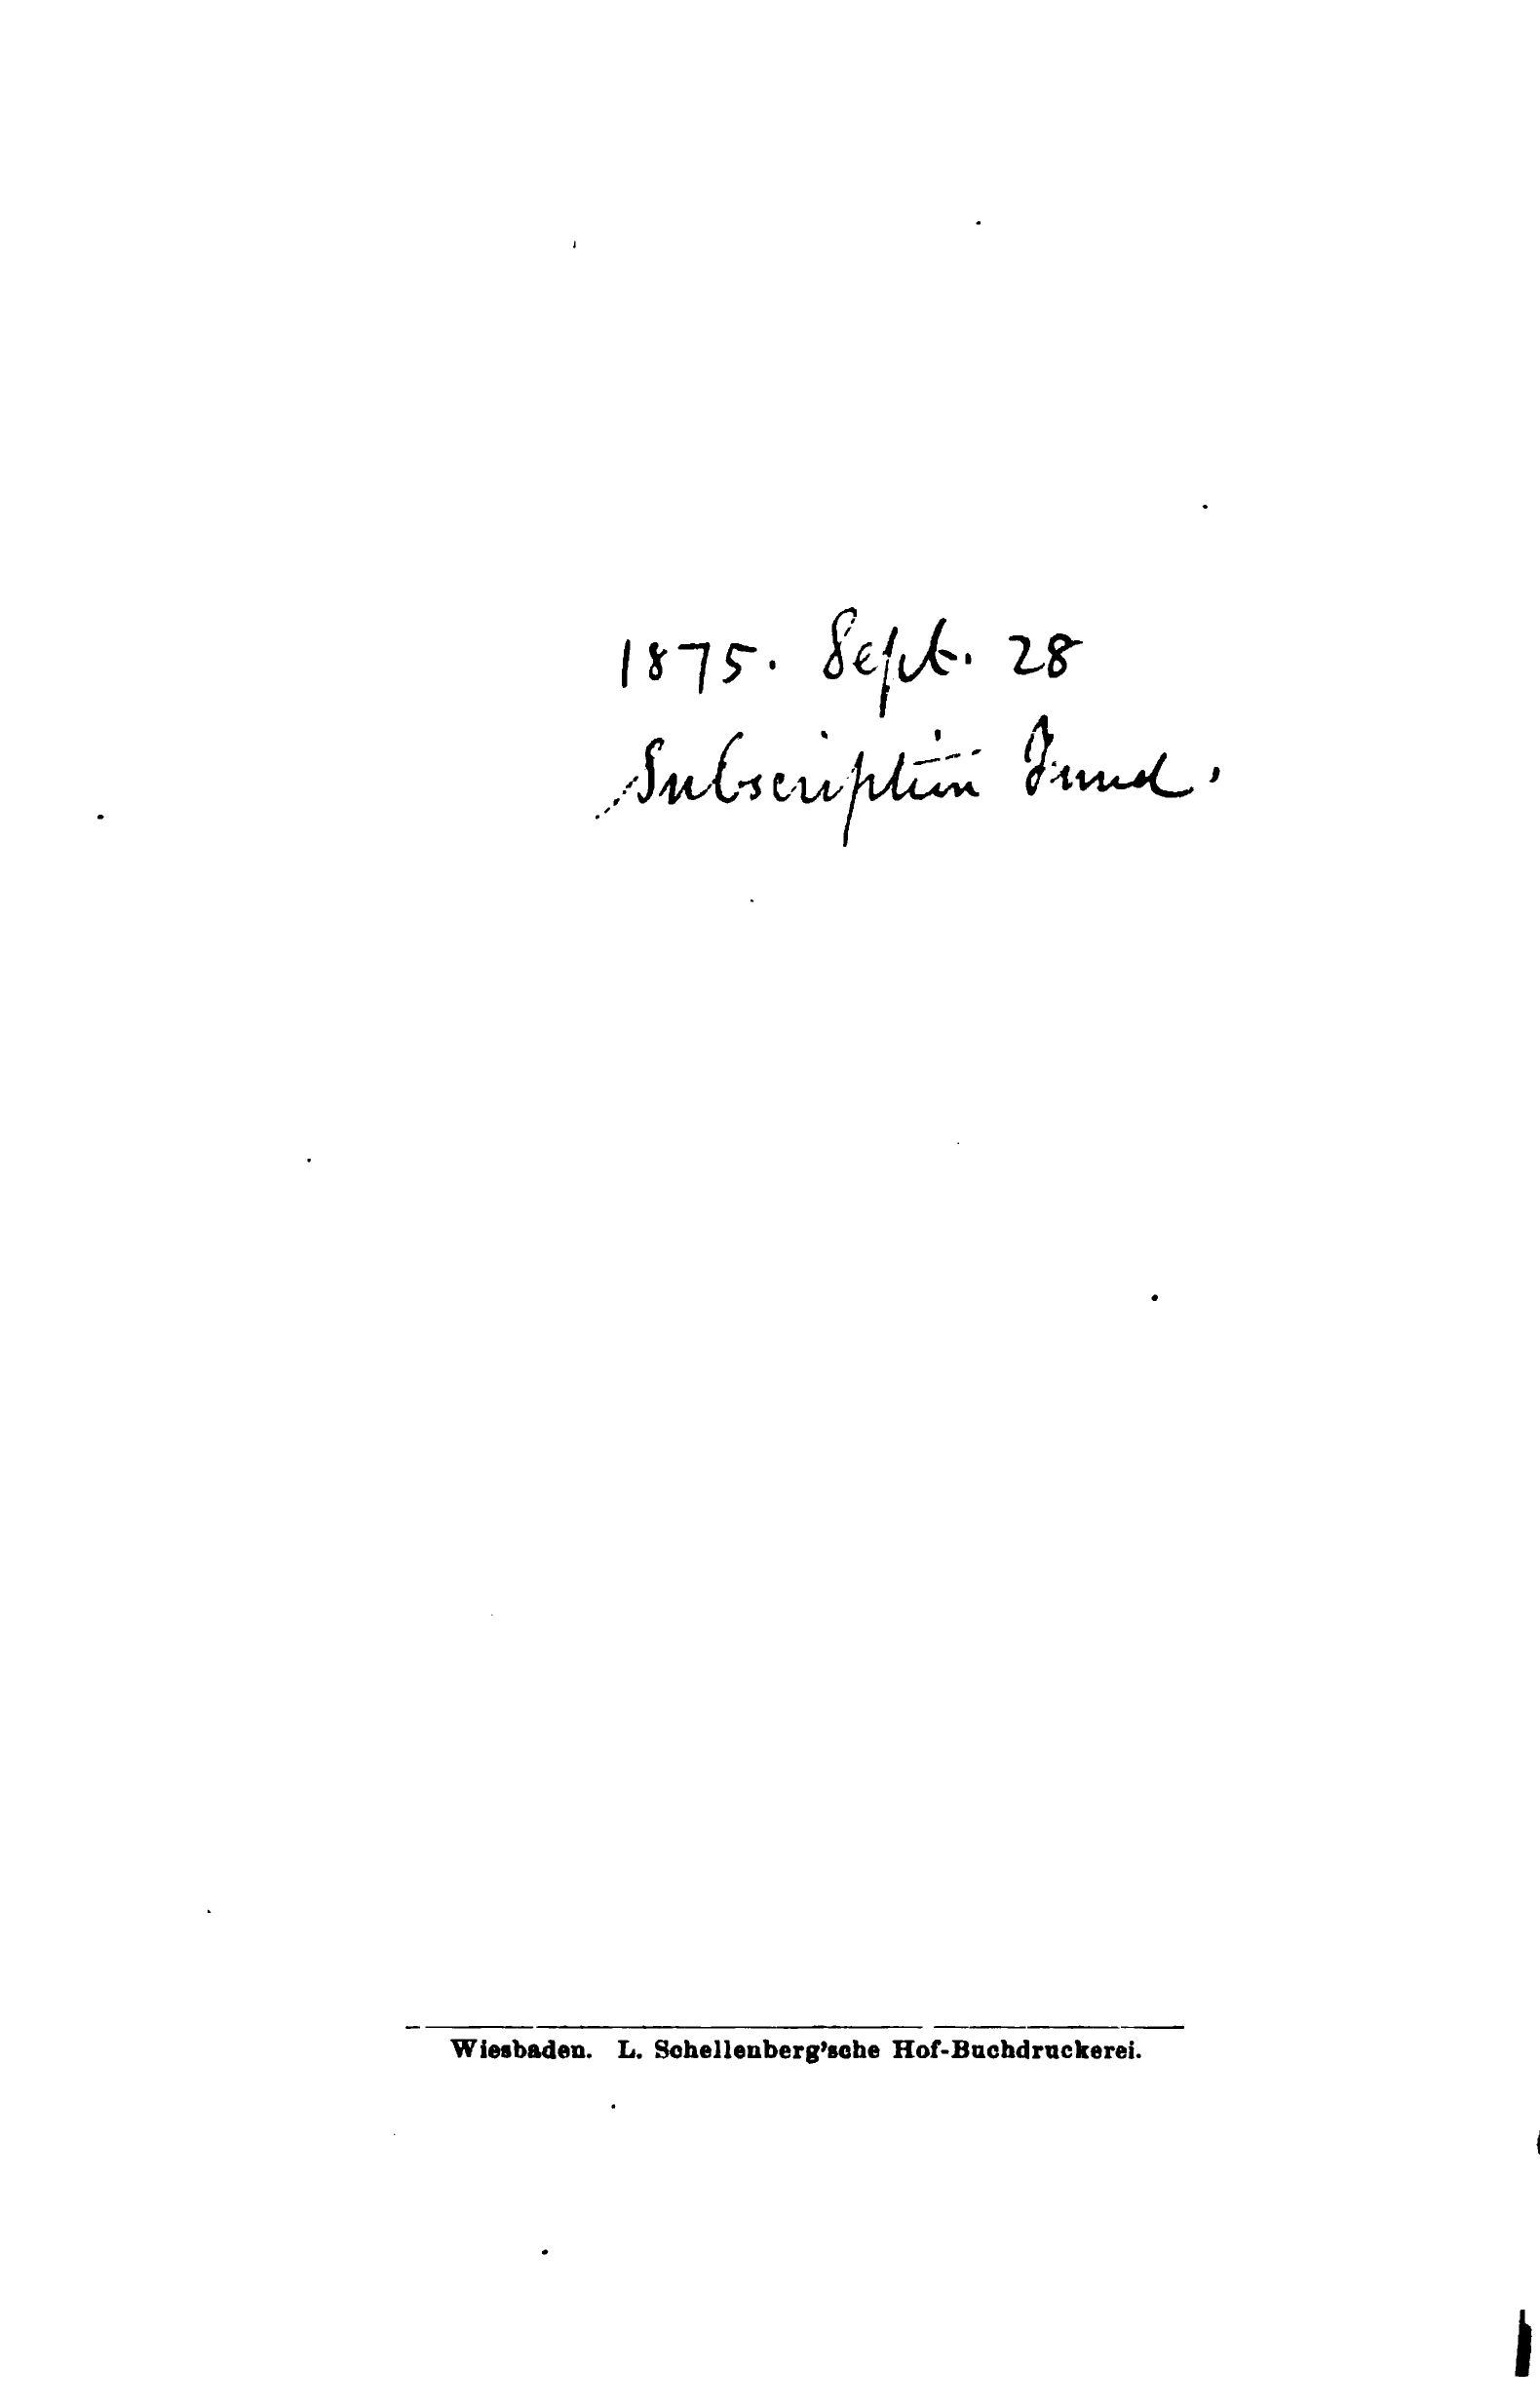 1875. Sept. 28
Subscription Fund.
Wiesbaden. L. Schellenberg'sche Hof-Buchdruckerei.